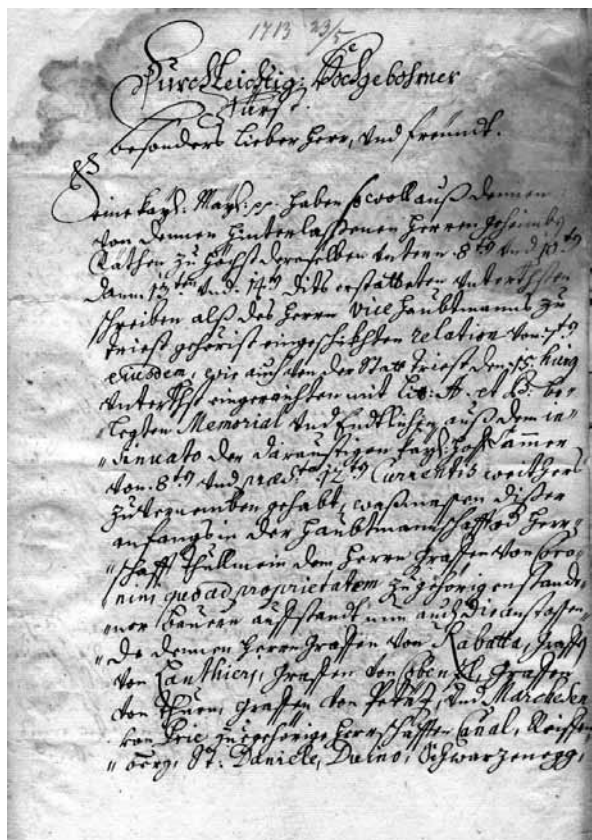 1713 23/5
Durchleichtig: Hochgebohrner
Fürst.
besonders lieber Herr, und freündt.
Seine Kayl: Mayl: pp. haben sowoll auß denen
von denen hinterlaßenen Herren geheimbe
Räthen zu höchst deroselben untern 8ten und
dann 13ten und 14ten dits erstatteten
schreiben alß des Herrn Vice Haubtmanns zu
triest gehorist eingeschickhten relation von
ejusdem, wie auch von der Statt Triest den 15.
eingereichten mit Lit: A. et B: be-
legten Memorial und Endtlichen auß dem in-
sinuato der daraustigen Kayl: Hoff Cammer
von 8ten und 12ten Currentis weithers
zuvernemben gehabt, waßmassen dißer
anfangs in der Haubtmannschafft und Herr-
schafft Thullmein dem Herrn Graffen von Coro-
nini quoad proprietatem zugehörig enstande-
ner bauern auffstandt nun auch die anstossen-
de denen Herrn Graffen von Rabatta, Graffen
von Lanthieri, Graffen von Cobenzl, Graffen
von Thurn, Graffen von Petaz, und Marchesen
von Prie, zugehörige Herrschafften Canal, Reiffen-
berg, St: Daniele, Duino, Schwarzenegg,